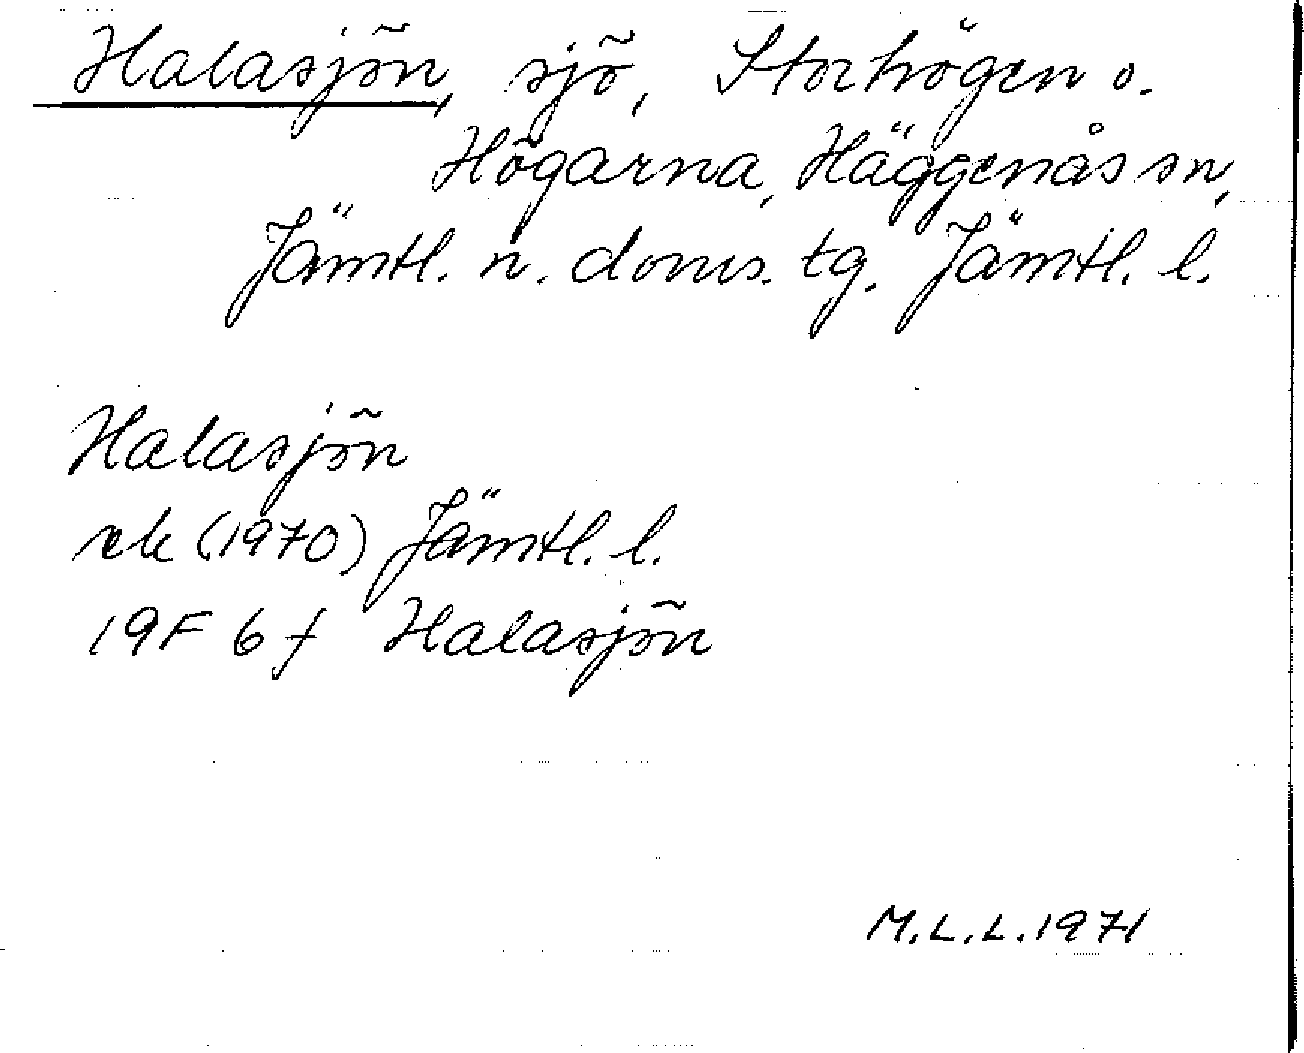 Halasjön, sjö, Storhögen o.
Högarna, Häggenås sn,
Jämtl. n. doms. tg. Jämtl. l.
Halasjön
rek (1970) Jämtl. l.
19F 6 f Halasjön
M.L.L. 1971